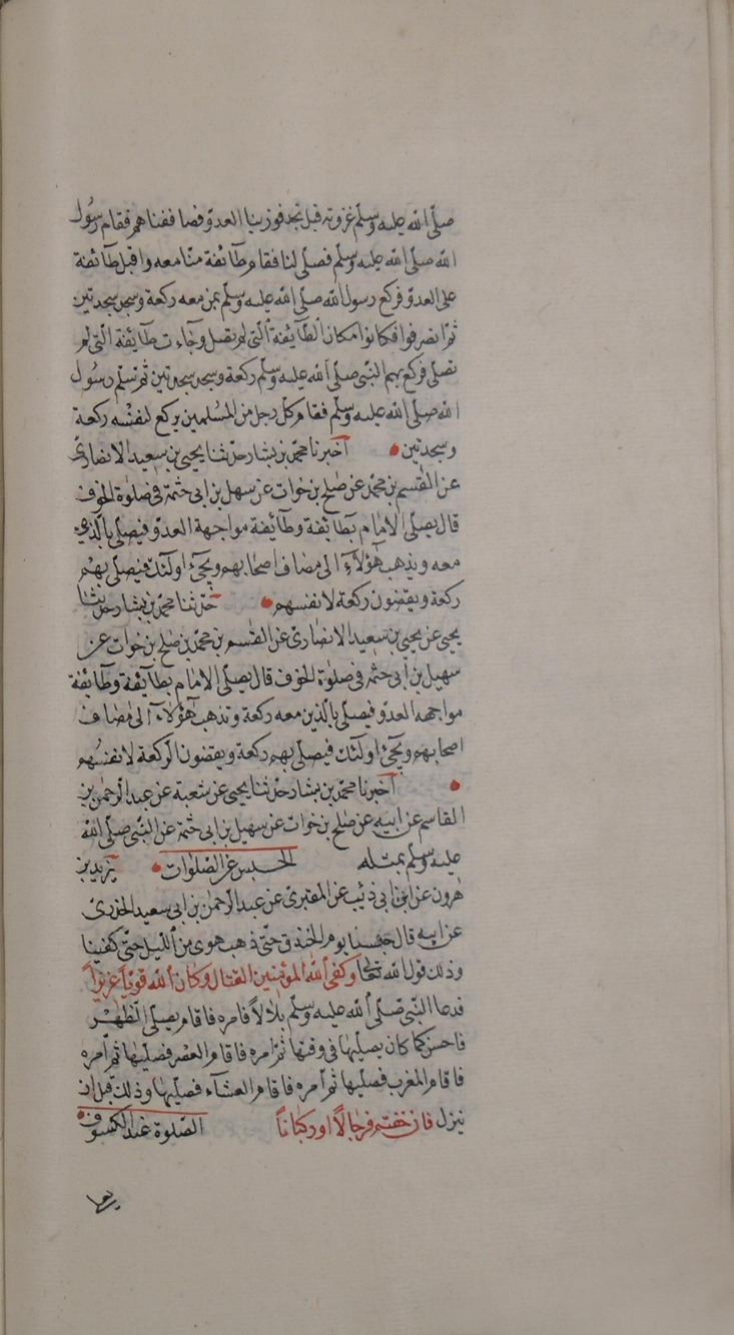 صلى الله عليه وسلم غزوته قبل نجد فوزينا العدو فصاففناهم فقام رسول
الله صلى الله عليه وسلم فصلى لنا فقام طآئفة منا معه واقبل طآئفة
على العدو فركع رسول الله صلى الله عليه وسلم بمن معه ركعة وسجد سجدتين
ثم انصرفوا فكانوا مكان الطآيفة التى لم تصل وجاءت طآيفة التى لم
تصلى فركع بهم النبى صلى الله عليه وسلم ركعة وسجد سجدتين ثم سلم رسول
الله صلى الله عليه وسلم فقام كل رجل من المسلمين يركع لنفسه ركعة
وسجدتين اخبرنا محمد بن بشار حدثنا يحيى بن سعيد الانصارى
عن القسم بن محمد عن صلح بن خوات عن سهل بن ابى حثمة فى صلوة الخوف
قال يصلى الامام بطآئفة وطآيفة مواجهة العدو فيصلى بالذى
معه ويذهب هؤلآء الى مصاف اصحابهم ويجىء اولئك فيصلى بهم
ركعة ويقضون ركعة لانفسهم حدثنا محمد بن بشار حدثنا
يحيى عن يحيى بن سعيد الانصارى عن القسم بن محمد بن صلح بن خوات عن
سهيل بن أبى حثمه فى صلوة الخوف قال يصلى الامام بطآيفة وطآئفة
مواجهه العدو فيصلى بالذين معه ركعة وتذهب هؤلاء الى مصاف
اصحابهم ويجىء اولئك فيصلى بهم ركعة ويقضون الركعة لانفسهم
اخبرنا محمد بن بشار حدثنا يحيى عن شعبة عن عبد الرحمن بن
القاسم عن ابيه عن صلح بن خوات عن سهيل بن ابى حثمة عن النبى صلى الله
عليه وسلم بمثله الحبس عن الصلوات يزيد بن
هرون عن ابن ابى ذئب عن المقبرى عن عبد الرحمن بن ابى سعيد الخدرى
عن ابيه قال حبسنا يوم الخندق حتى ذهب هوى من الليل حتى كفينا
وذلك قول الله تعالى وكفى الله المؤمنين القتال وكان الله قويا عزيزا
فدعا النبى صلى الله عليه وسلم بلالاً فامره فاقام يصلى الظهر
فاحسن كما كان يصليها فى وقتها ثم امره فاقام العصر فصليها ثم أمره
فاقام المغرب فصليها ثم أمره فاقام العشآء فصليها وذلك قبل ان
ينزل فان خفتم فرجالاً او ركباناً الصلوة عند الكسوف